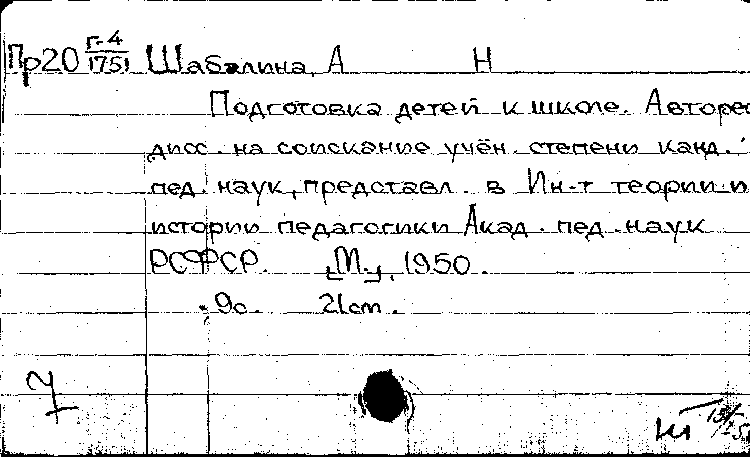 Пр20 Г-4/1751 Шабалина, А Н
Подготовка детей к школе. Авторе
дисс. на соискание учён. степени канд.
пед. наук, представл. в Ин-т теории и
истории педагогики Акад. пед. наук
РСФСР. [М.], 1950.
9с. 21cm.